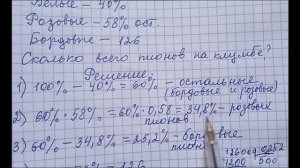 Белые - 40%
Розовые - 58% ост.
Бордовые - 126
Сколько всего пионов на клумбе?
Решение
1) 100% - 40% = 60% - остальные
(бордовые и розовые)
2) 60% · 58% = 60% · 0,58 = 34,8% - розовые
пионов
3) 60% - 34,8% = 25,2% - бордовые
пионов